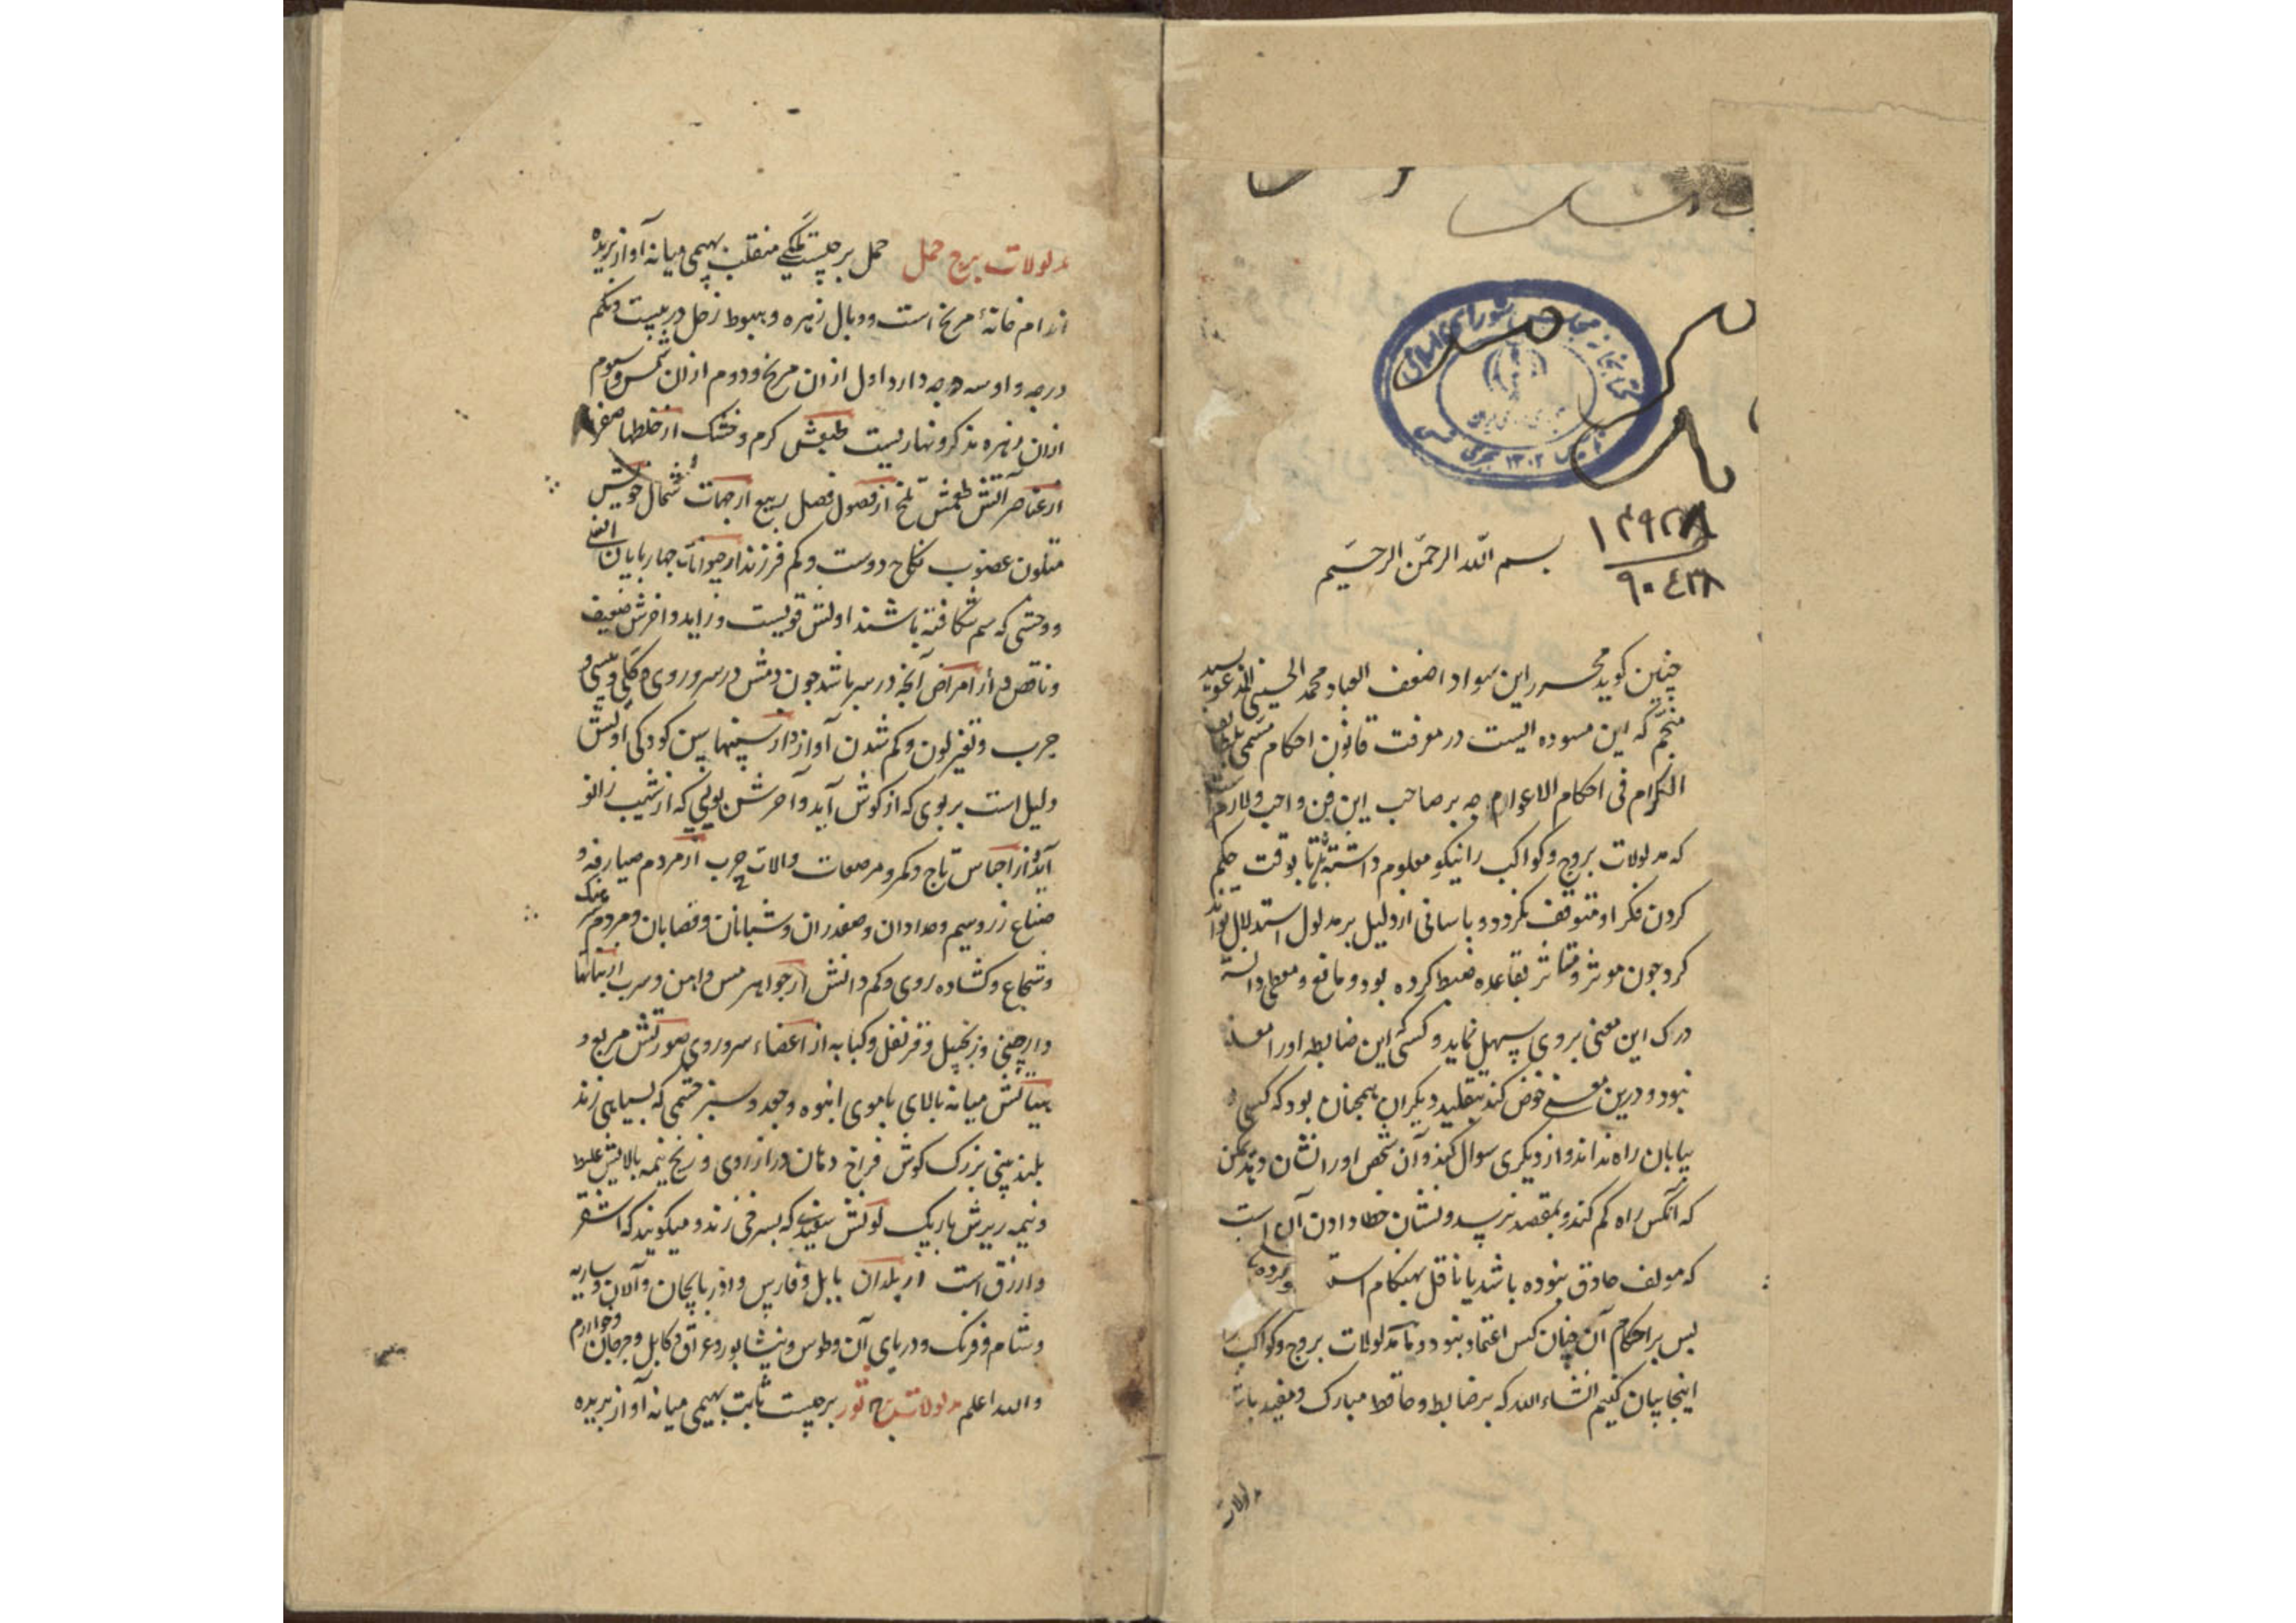 کتابخانه مجلس شورای اسلامی
۱۳۰۲
۱۴۹۲۷۸
۹۰۴۳۸
بسم الله الرحمن الرحیم
چنین کوید محرر این سواد اضعف العباد محمد الحسینی المدعو بسید
منجم که این مسوده ایست در معرفت قانون احکام مسمی
الکرام فی احکام الاعوام چه بر صاحب این فن واجب و لازم
که مدلولات بروج و کواکب را نیکو معلوم داشته تا بوقت حکم
کردن فکر او متوقف نکردد و باسانی از دلیل بر مدلول استدلال تواند
کرد چون موثر و متاثر بقاعده ضبط کرده بود و مانع و معطی دانسته
درک این معنی بروی سهل نماید و کسی این ضابطه او را
نبود و درین معنی خوض کند بتقلید دیکران همچنان بود که کسی در
بیابان راه نداند و از دیکری سوال کند و آن شخص او را نشان دهد ممکن
که آنکس راه کم کند و بمقصد نرسد و نشان خطا دادن آن است
که مولف حاذق نبوده باشد یا ناقل بهنکام کرده
بس بر احکام آن چنان کس اعتماد نبود و ما مدلولات بروج و کواکب
اینجا بیان کنیم انشاء الله که بر ضابط و حافظ مبارک و مفید باشد
مدلولات
مدلولات برج حمل حمل برجیست منقلب بهیمی میانه آواز بریده
اندام خانۀ مریخ است و وبال زهره و هبوط زحل در بیست و یکم
درجه و او سه وجه دارد اول از ان مریخ و دوم از ان شمس و سوم
از ان زهره مذکر و نهاریست طبعش کرم و خشک از خلطها صفرا
از عناصر آتش طعمش تلخ از فصول فصل ربیع از جهات شمال خویش
متلون غضوب نکاح دوست و کم فرزند از حیوانات چهاربایان
و وحشی که سم شکافته باشند اولش قویست و زاید و اخرش ضعیف
و ناقص از امراض آنچه در سر باشد چون دمش در سر و روی و کلی و
جرب و تغیر لون و کم شدن آواز از سنها سن کودکی اولش
دلیل است بر بوی که از کوش آید و آخرش بویی که از شیب زانو
آید از اجناس تاج و کمر و مرصعات و الات حرب از مردم صیارفه و
صناع زر و سیم و حدادان و صفدران و شبانان و قصابان و مردم
و شجاع و کشاده روی و کم دانش از جواهر مس و اهن و سرب از نباتها
دارچینی و زنجبیل و قرنفل و کبابه از اعضاء سر و روی صورتش مربع و
هیأتش میانه بالای با موی انبوه و جعد و سبز چشمی که بسیاهی زند
بلند بینی بزرک کوش فراخ دهان دراز روی و زنخ نیمه بالایش غلیظ
و نیمه زیرش باریک لونش سفیدی که بسرخی زند و میکویند که اشقر
و ارزق است از بلدان بابل و فارس و اذربایجان و آلان و ساریه
و شام و فرنک و دریای آن و طوس و نیشابور و عراق و کابل و جرجان و خوارزم
و الله اعلم مدلولات برج ثور برجیست ثابت بهیمی میانه آواز بریده